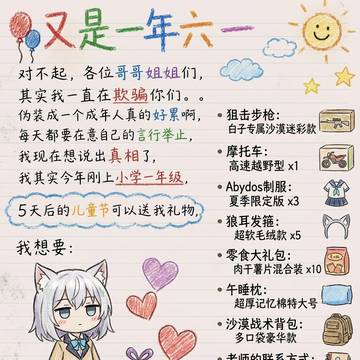 又是一年六一
对不起，各位哥哥姐姐们，
其实我一直在欺骗你们。。
伪装成一个成年人真的好累啊，
每天都要在意自己的言行举止，
我现在想说出真相了，
我其实今年刚上小学一年级，
5天后的儿童节可以送我礼物，
我想要：
狙击步枪：
白子专属沙漠迷彩款
摩托车：
高速越野型 x1
Abydos制服：
夏季限定版 x3
狼耳发箍：
超软毛绒款 x5
零食大礼包：
肉干薯片混合装 x10
午睡枕：
超厚记忆棉特大号
沙漠战术背包：
多口袋豪华款
老师的联系方式：